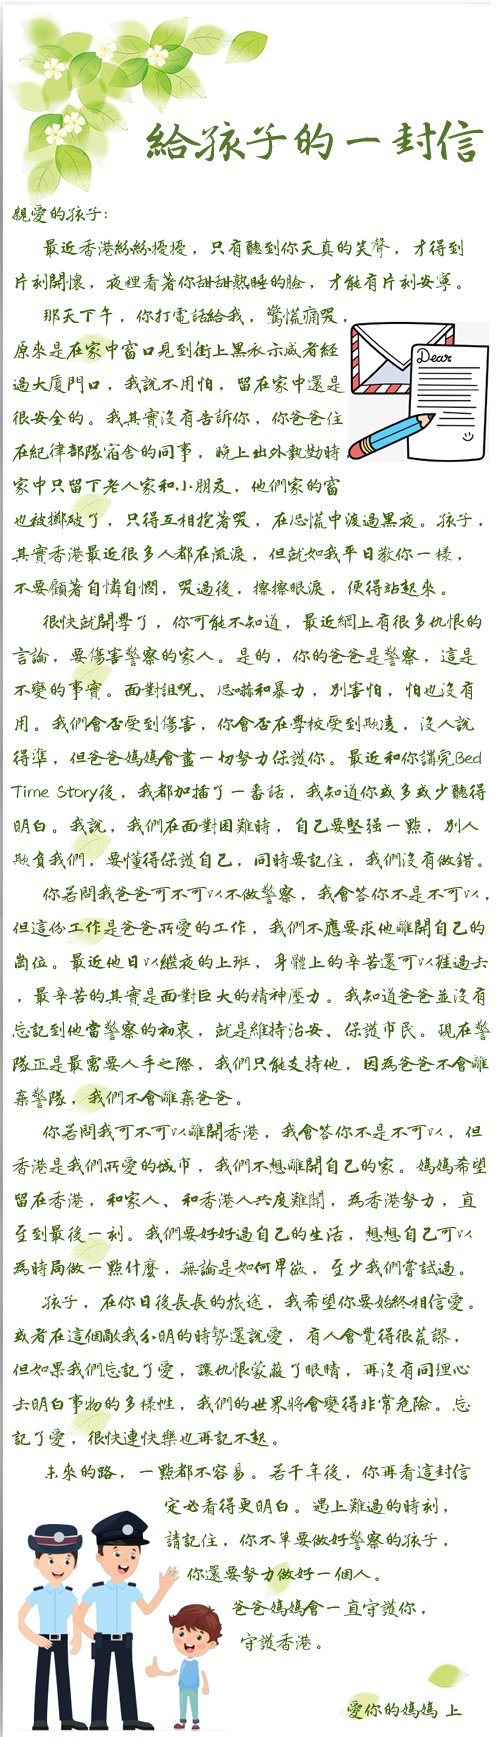 給孩子的一封信
親愛的孩子:
最近香港紛紛擾擾，只有聽到你天真的笑聲，才得到
片刻開懷，夜裡看著你甜甜熟睡的臉，才能有片刻安寧。
那天下午，你打電話給我，驚慌痛哭，
原來是在家中窗口見到街上黑衣示威者經
過大廈門口，我說不用怕，留在家中還是
很安全的。我其實沒有告訴你，你爸爸住
在紀律部隊宿舍的同事，晚上出外執勤時
家中只留下老人家和小朋友，他們家的窗
也被擲破了，只得互相抱著哭，在恐慌中渡過黑夜。孩子，
其實香港最近很多人都在流淚，但就如我平日教你一樣，
不要顧著自憐自憫，哭過後，擦擦眼淚，便得站起來。
很快就開學了，你可能不知道，最近網上有很多仇恨的
言論，要傷害警察的家人。是的，你的爸爸是警察，這是
不變的事實。面對詛咒、恐嚇和暴力，別害怕，怕也沒有
用。我們會否受到傷害，你會否在學校受到欺凌，沒人說
得準，但爸爸媽媽會盡一切努力保護你。最近和你講完Bed
Time Story後，我都加插了一番話，我知道你或多或少聽得
明白。我說，我們在面對困難時，自己要堅强一點，別人
欺負我們，要懂得保護自己，同時要記住，我們沒有做錯。
你若問我爸爸可不可以不做警察，我會答你不是不可以，
但這份工作是爸爸所愛的工作，我們不應要求他離開自己的
崗位。最近他日以繼夜的上班，身體上的辛苦還可以捱過去
，最辛苦的其實是面對巨大的精神壓力。我知道爸爸並沒有
忘記到他當警察的初衷，就是維持治安、保護市民。現在警
隊正是最需要人手之際，我們只能支持他，因為爸爸不會離
棄警隊，我們不會離棄爸爸。
你若問我可不可以離開香港，我會答你不是不可以，但
香港是我們所愛的城市，我們不想離開自己的家。媽媽希望
留在香港，和家人、和香港人共度難關，為香港努力，直
至到最後一刻。我們要好好過自己的生活，想想自己可以
為時局做一點什麼，無論是如何卑微，至少我們嘗試過。
孩子，在你日後長長的旅途，我希望你要始終相信愛。
或者在這個敵我分明的時勢還說愛，有人會覺得很荒謬，
但如果我們忘記了愛，讓仇恨蒙蔽了眼睛，再沒有同理心
去明白事物的多樣性，我們的世界將會變得非常危險。忘
記了愛，很快連快樂也再記不起。
未來的路，一點都不容易。若干年後，你再看這封信
定必看得更明白。遇上難過的時刻，
請記住，你不單要做好警察的孩子，
你還要努力做好一個人。
爸爸媽媽會一直守護你，
守護香港。
愛你的媽媽 上
Dear